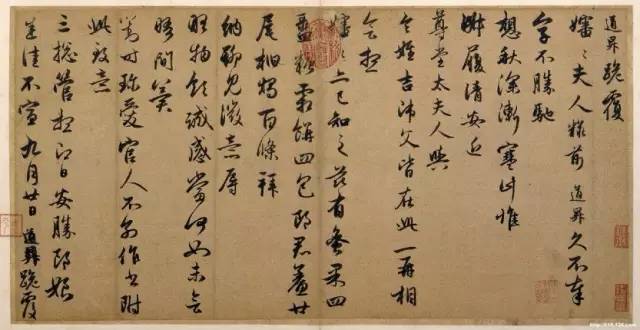 道昇跪覆
嬸〻夫人糚前道昇久不奉
字不勝馳
想秋深漸寒計惟
淑履請安近
尊堂太夫人與
令姪吉師父皆在此一再相
會想
嬸〻亦已知之茲有蜜果四
盝糖霜餅四包郎君鯗廿
尾柏燭百條拜
納聊見微意辱
略物領誠感當何如未會
晤間冀
對時珍愛官人不別作書附
此致意
三總管想即日安勝郎娘
悉佳不宣九月廿日道昇跪覆